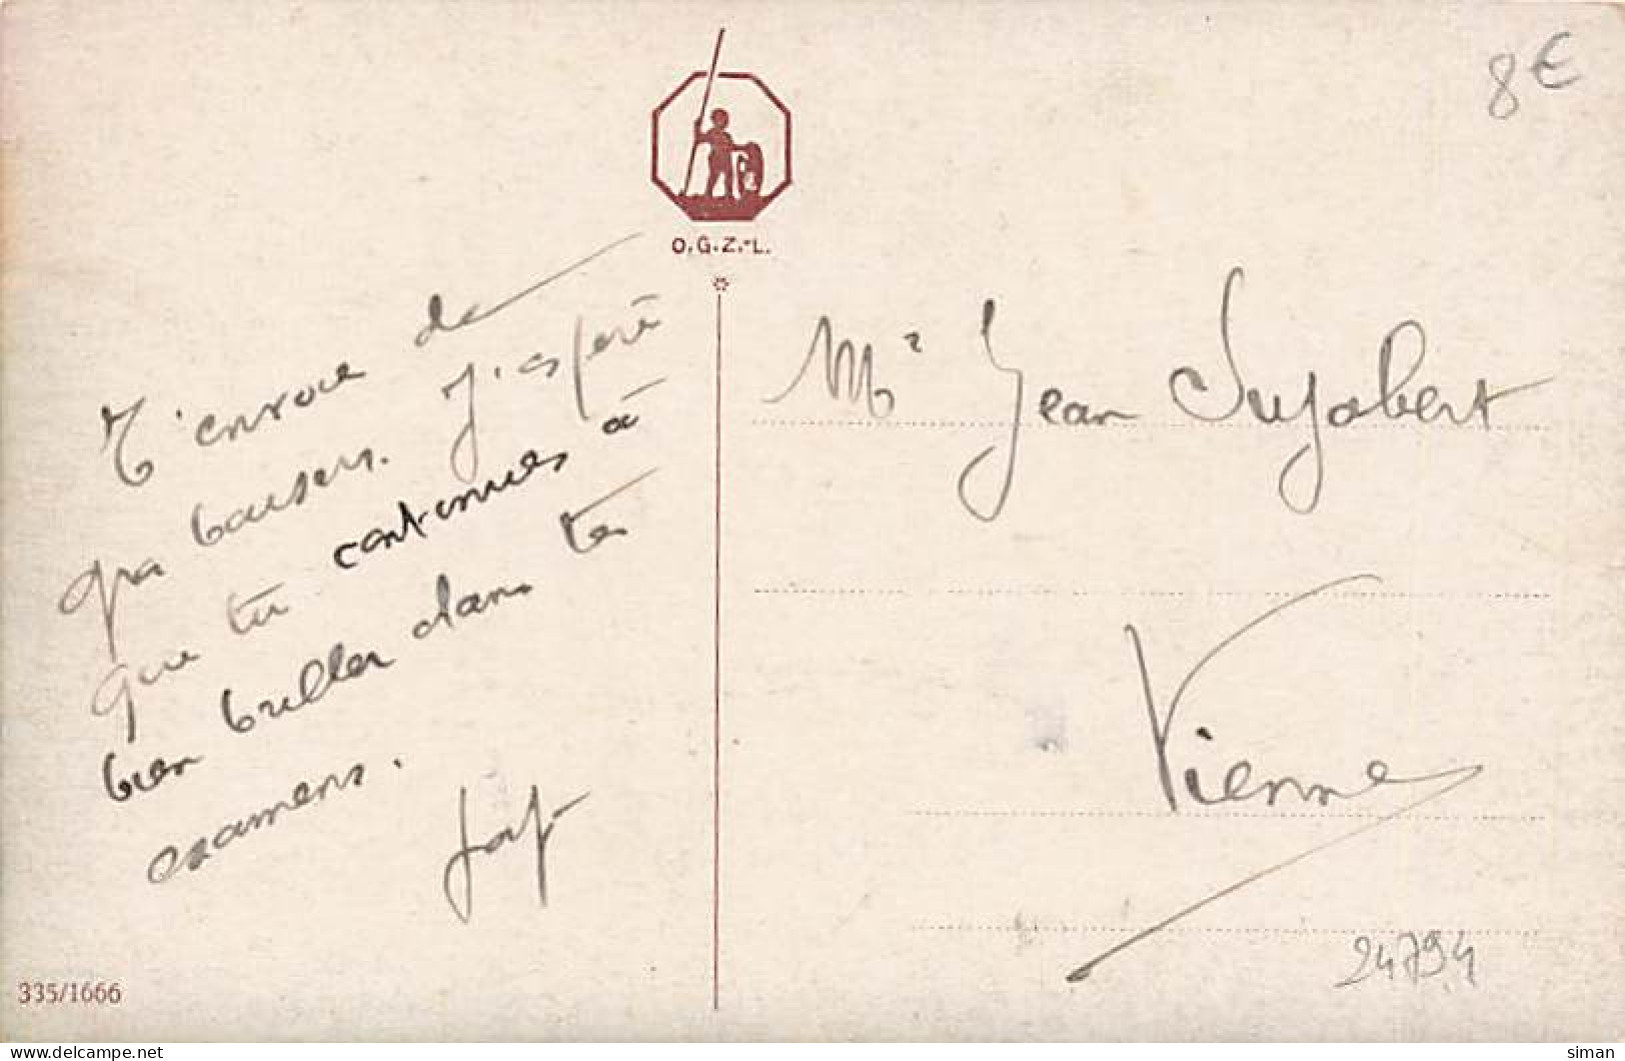 8€
O.G.Z.-L.
T'envoie de
gros baisers. J'espère
que tu continues à
bien briller dans tes
examens.
Mr Jean Sujobert
Vienne
24794
335/1666
delcampe.net
siman